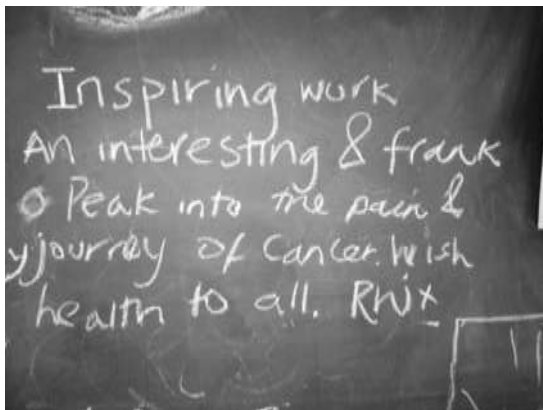 Inspiring work
An interesting & frank
Peak into the pain &
journey of Cancer. Wish
health to all.